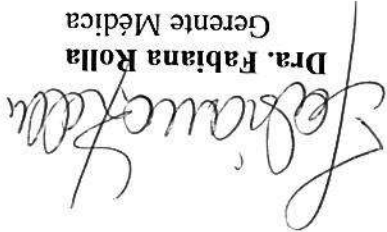 Fabiana Rolla
Dra. Fabiana Rolla
Gerente Médica